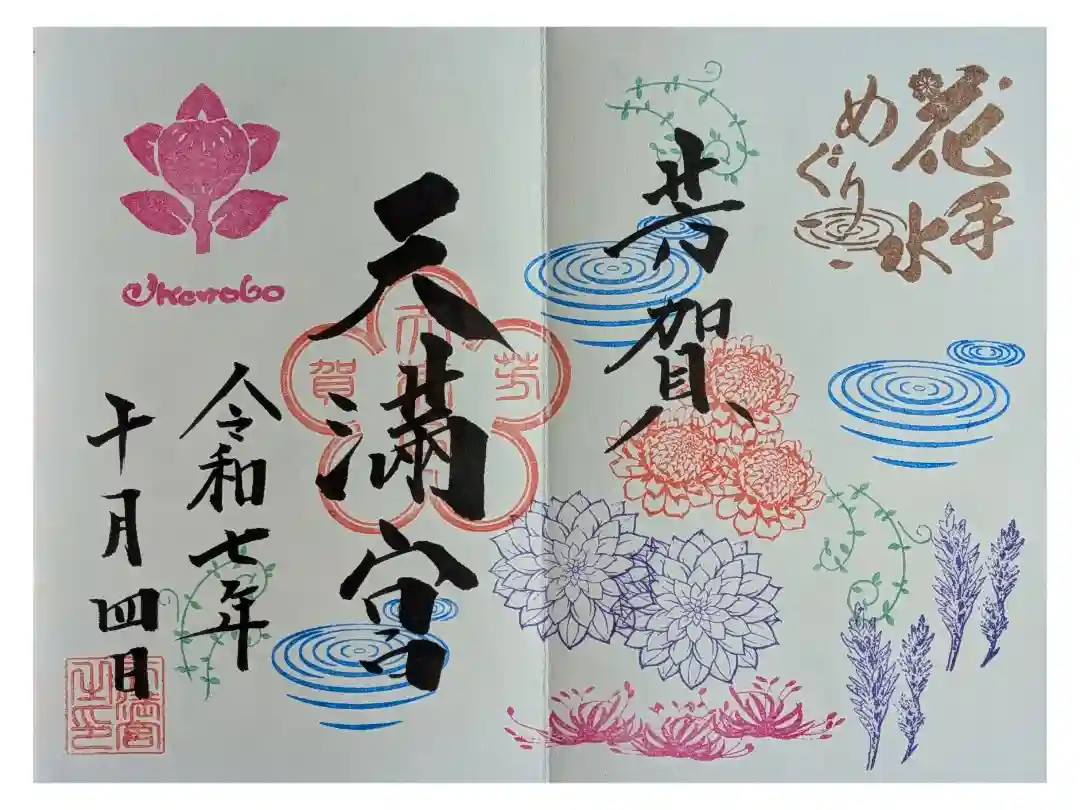 花手水
めぐり
芳賀
天満宮
芳
賀
Ikenobo
令和七年
十月四日